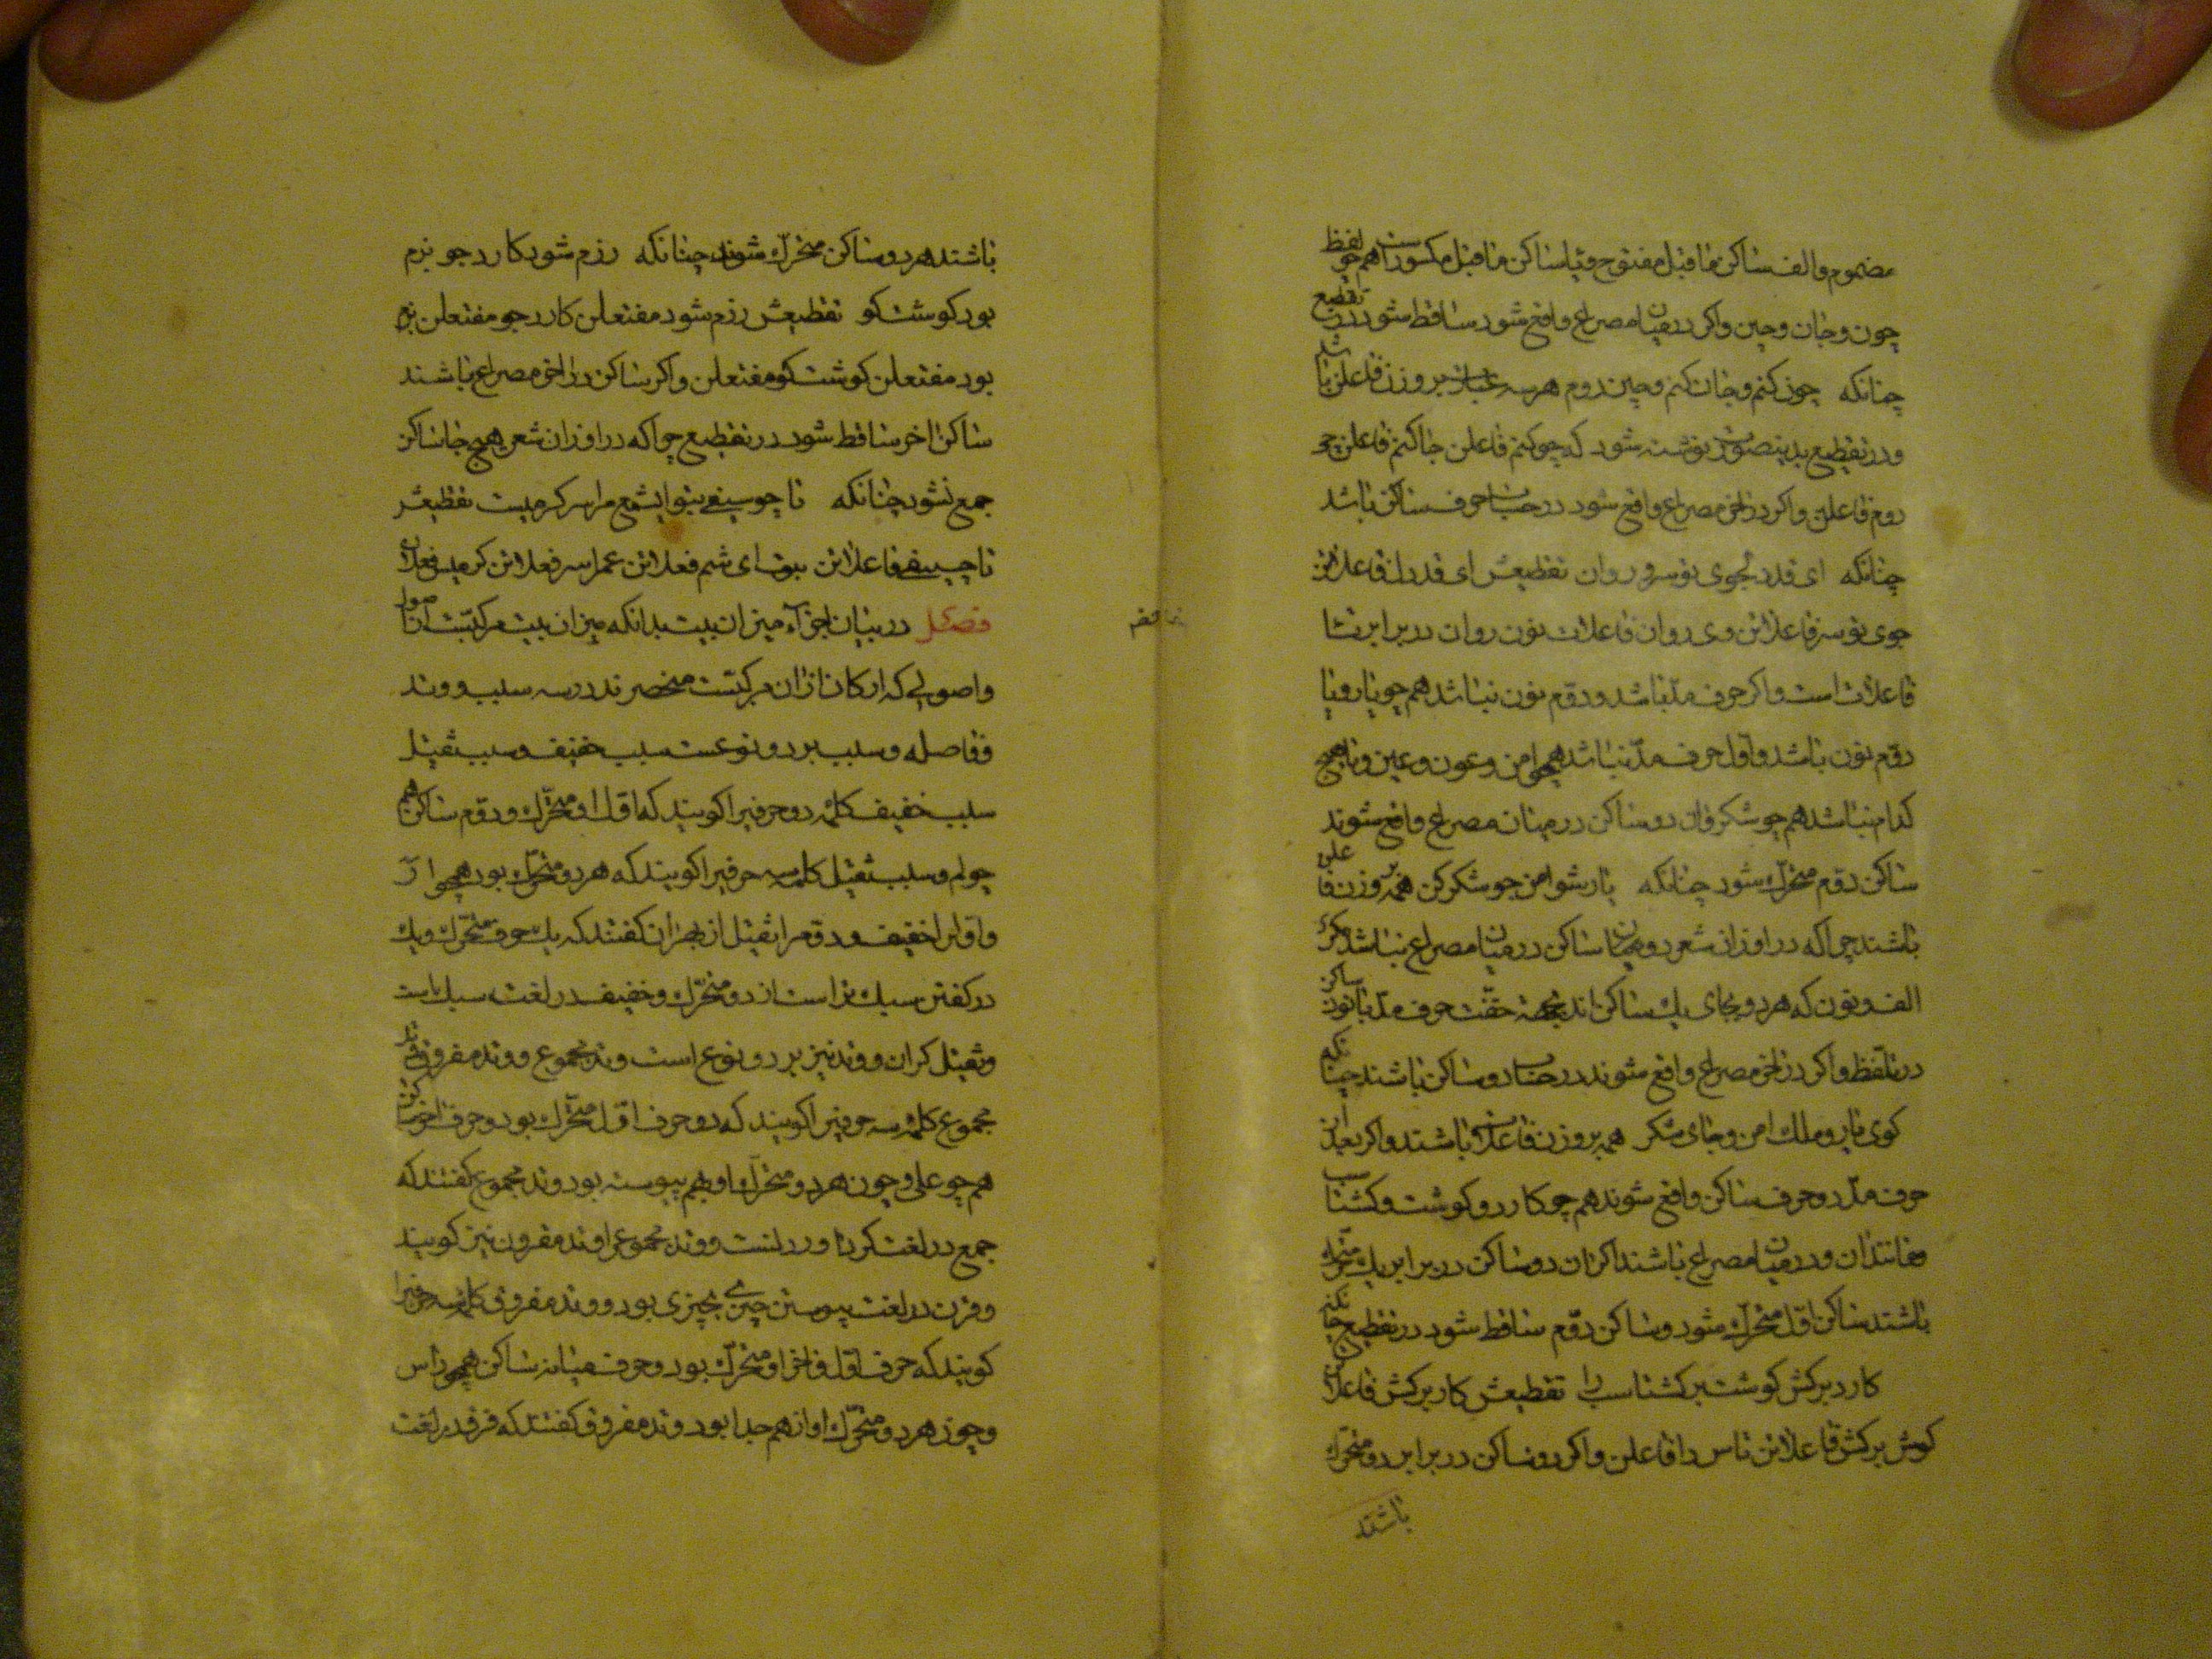 مضموم والف ساکن ماقبل مفتوح ویا ساکن ماقبل مکسور است هم چو لفظ
چون و جان و چین واکر در میان مصراع واقع شود ساقط شود در تقطیع
چنانکه چون کنم و جان کنم و چین دوم هر سه عبارت بر وزن فاعلن باشد
ودر تقطیع بدینصورت نوشته شود که چو کنم فاعلن جا کنم فاعلن چی
روم فاعلن واکر در اخر مصراع واقع شود در حساب حرف ساکن باشد
چنانکه ای قدر لجوی تو سرو روان تقطیعش ای قدر ل فاعلاتن
جوی تو سر فاعلاتن وی روان فاعلات نون روان در برابر تا
فاعلات است واکر حرف مد باشد ودوم نون نباشد هم چو یار و یا
دوم نون باشد واول حرف مد نباشد همچو امن وعون وعین ویا هیچ
کدام نباشد هم چو شکر وان دو ساکن در میان مصراع واقع شوند
ساکن دوم متحرک شود چنانکه یار شو امن جو شکر کن همه بر وزن فاعلن
باشند چرا که در اوزان شعر دو ساکن در میان مصراع نباشد مکر
الف ونون که هر دو بجای یک ساکن اند بجهة خفت حرف مد با نون ساکن
در تلفظ واکر در اخر مصراع واقع شوند در حساب دو ساکن باشند چنانکه
کوی یار و ملک امن و جای شکر همه بر وزن فاعلات باشند واکر بعد از
حرف مد دو حرف ساکن واقع شوند هم چو کارد و کوشت و کشتاسب
ومانند ان ودر میان مصراع باشند اکر ان دو ساکن در برابر یک متحرک
باشند ساکن اول متحرک شود وساکن دوم ساقط شود در تقطیع چنانکه
کارد برکش کوشت بر کشتاسب را تقطیعش کار برکش فاعلاتن
کوش برکش فاعلاتن تاس را فاعلن واکر دو ساکن در برابر دو متحرک
باشند
باشند هر دو ساکن متحرک شوند چنانکه رزم شود کارد جو بزم
بود کوشت کو تقطیعش رزم شود مفتعلن کارد جو مفتعلن بزم
بود مفتعلن کوشت کو مفتعلن واکر ساکن در اخر مصراع باشند
ساکن اخر ساقط شود در تقطیع چرا که در اوزان شعر هیچ جا ساکن
جمع نشود چنانکه تا چو سیفی بتو ای شمع مرا سر کرمیست تقطیعش
تا چ سیفی فاعلاتن بتو ای شم فعلاتن ع مرا سر فعلاتن کرمیس فعلان
فصل در بیان اجزاء میزان بیت بدانکه میزان بیت مرکبست از اصول
واصولی که ارکان ازان مرکبست منحصرند در سه سبب و وتد
وفاصله وسبب بر دو نوعست سبب خفیف وسبب ثقیل
سبب خفیف کلمه دو حرفیرا کویند که اول او متحرک ودوم ساکن هم
چو لم وسبب ثقیل کلمه حرفیرا کویند که هر دو متحرک بود همچو ار
واولرا خفیف ودومرا ثقیل از بهر ان کفتند که یک حرف متحرک ویک
در کفتن سبک تر است از دو متحرک وخفیف در لغت سبک است
وثقیل کران ووتد نیز بر دو نوع است وتد مجموع ووتد مفروق وتد
مجموع کلمه سه حرفیرا کویند که دو حرف اول متحرک بود وحرف اخر ساکن
هم چو علی وچون هر دو متحرک او بهم پیوسته بود وتد مجموع کفتند که
جمع در لغت کرد اوردنست ووتد مجموعرا وتد مقرون نیز کویند
وقرن در لغت پیوستن چیزی بچیزی بود ووتد مفروق کلمه سه حرفیرا
کویند که حرف اول واخر او متحرک بود وحرف میانه ساکن همچو راس
وچون هر دو متحرک او از هم جدا بود وتد مفروق کفتند که فرق در لغت